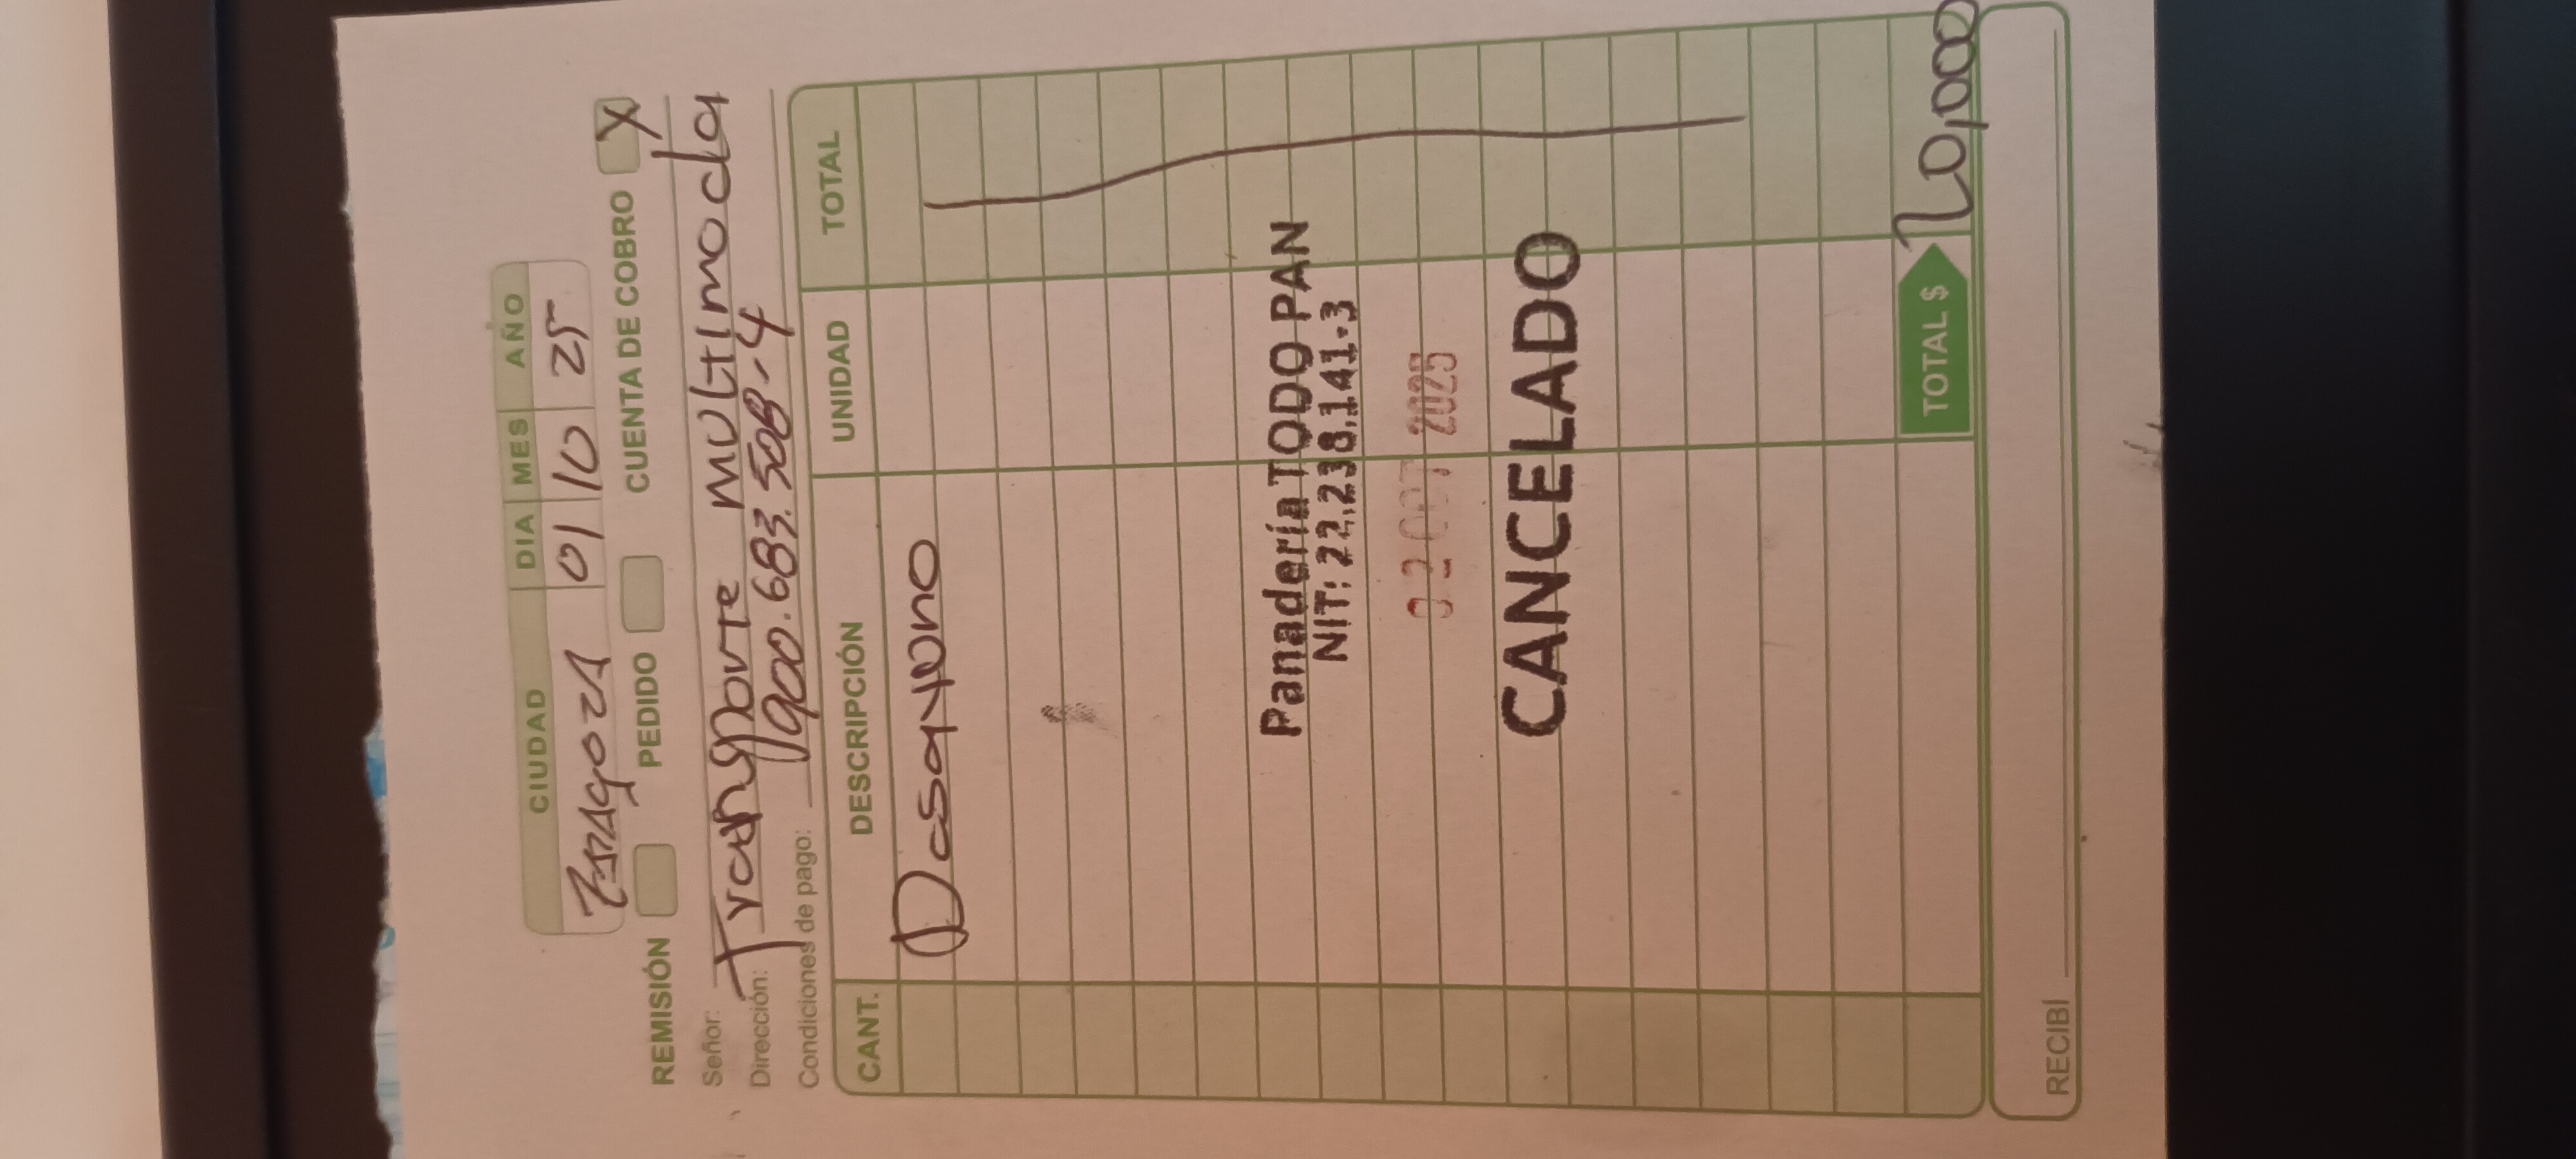 CIUDAD DIA MES AÑO
Zaragoza 01 10 25
REMISIÓN PEDIDO CUENTA DE COBRO X
Señor: Transporte multimodal
Dirección: 900.683.508-4
Condiciones de pago:
CANT. DESCRIPCIÓN UNIDAD TOTAL
Desayuno
Panadería TODO PAN
NIT: 22.238.141-3
02 OCT 2025
CANCELADO
TOTAL $ 20,000
RECIBÍ